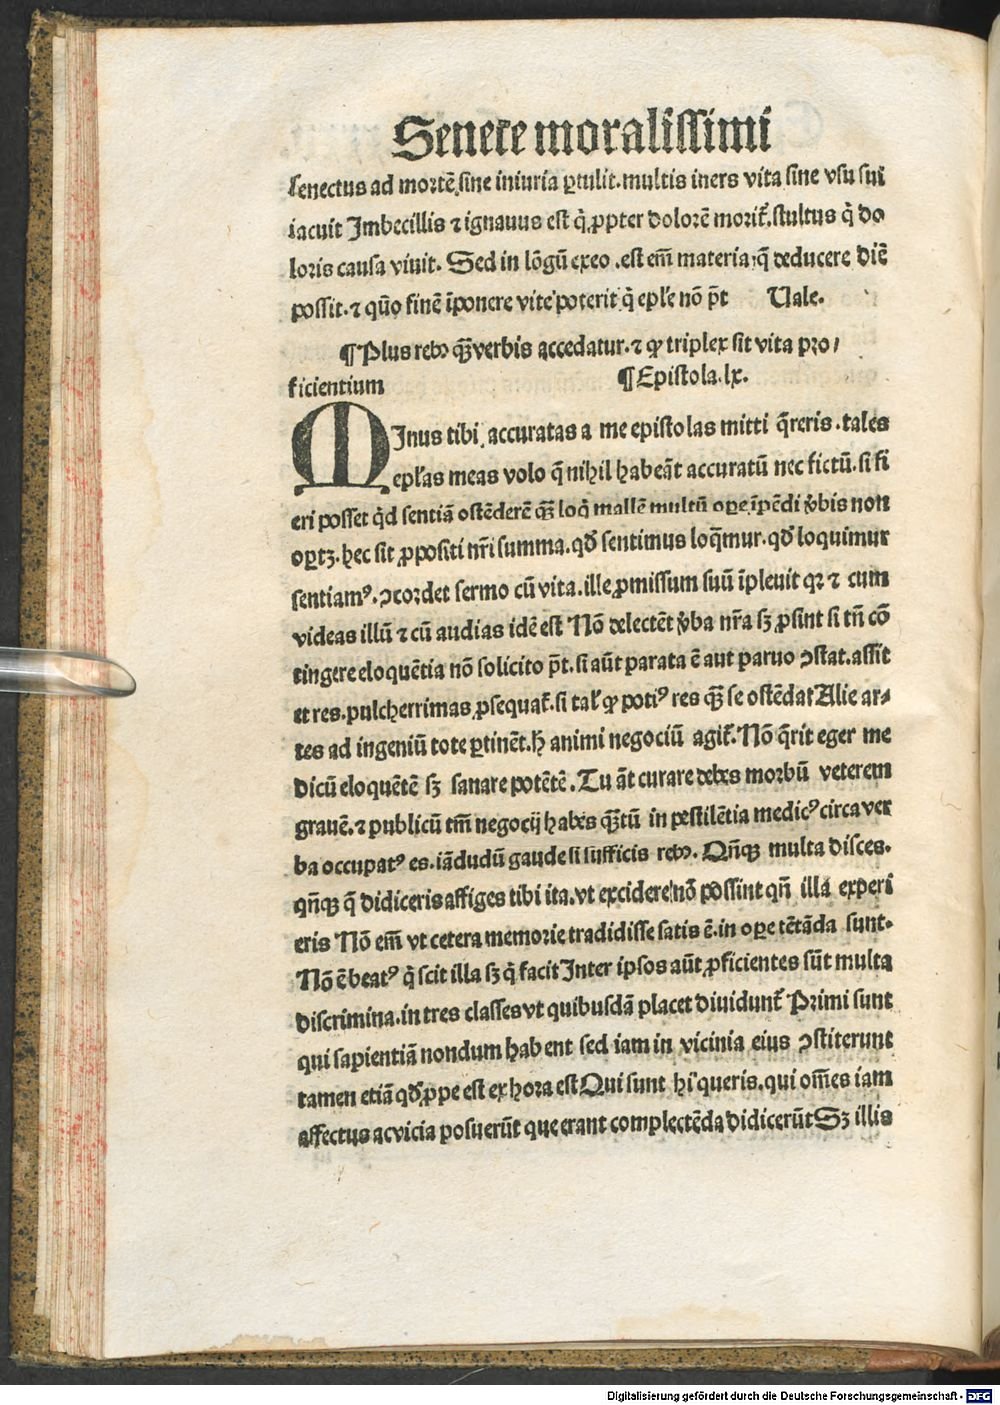 Senece moralissimi
senectus ad mortē sine iniuria ꝑtulit. multis iners vita sine vsu sui
iacuit Imbecillis ⁊ ignauus est q̇ ꝓpter dolorē morit᷑. stultus q̇ do
loris causa viuit. Sed in lōgū exeo .est em̄ materia q̄ deducere diē
possit. ⁊ quō finē īponere vite poterit q̇ ep̄le nō p̄t Uale.
¶ Plus reb9 q̄ꝫ verbis accedatur. ⁊ ꝙ triplex sit vita pro/
ficientium ¶ Epistola .lx.
MInus tibi accuratas a me epistolas mitti q̄reris .tales
ep̄las meas volo q̄ nihil habeāt accuratū nec fictū. si fi
eri posset q̇d sentiā ostēderē q̄ꝫ loq̇ mallē multū ope īpēdi v̓bis non
oꝑtꝫ. hec sit ꝓpositi nr̄i summa. qd̓ sentimus loq̄mur. qd̓ loquimur
sentiamꝰ. ꝯcordet sermo cū vita. ille ꝓmissum suū īpleuit qꝛ ⁊ cum
videas illū ⁊ cū audias idē est Nō delectēt v̓ba nr̄a sꝫ ꝓsint si tn̄ cō
tingere eloquētia nō solicito p̄t. si aūt parata ē aut paruo ꝯstat. assit
et res. pulcherrimas ꝓsequat᷑. si tal̓ ꝙ potiꝰ res q̄ꝫ se ostēdat Alie ar-
tes ad ingeniū tote ꝑtinēt. h̓ animi negociū agit᷑. Nō q̄rit eger me
dicū eloquētē sꝫ sanare potētē. Tu āt curare debes morbū veterem
grauē. ⁊ publicū tm̄ negocij habes q̄ꝫtū in pestilētia medicꝰ circa ver
ba occupatꝰ es. iādudū gaude si sufficis reb9. Qn̄qꝫ multa disces.
qn̄qꝫ q̄ didiceris affiges tibi ita. vt excidere nō possint qn̄ illa experi
eris Nō em̄ vt cetera memorie tradidisse satis ē. in oꝑe tētāda sunt.
Nō ē beatꝰ q̇ scit illa sꝫ q̇ facit Inter ipsos aūt ꝓficientes sūt multa
discrimina. in tres classes vt quibusdā placet diuidunt᷑ Primi sunt
qui sapientiā nondum habent sed iam in vicinia eius ꝯstiterunt
tamen etiā qd̓ ꝓpe est ex hora est Qui sunt hi queris. qui om̄es iam
affectus ac vicia posuerūt que erant complectēda didicerūt Sꝫ illis
Digitalisierung gefördert durch die Deutsche Forschungsgemeinschaft - DFG